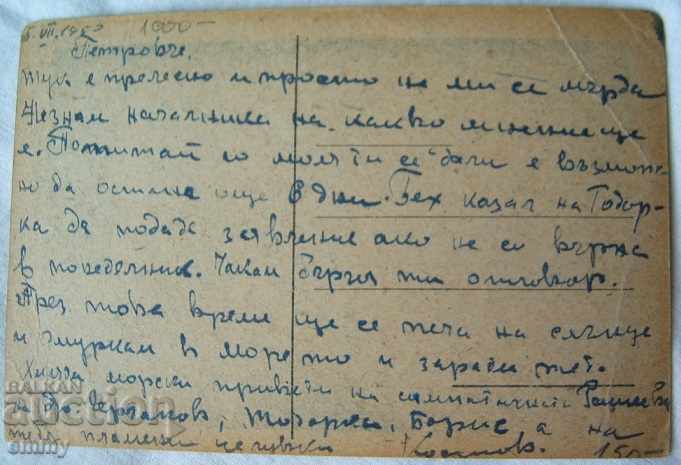 5. VII. 195 1000-
Петровче,
Тук е прелесно и просто не ми се мърда
Незнам началника на какво мнение ще
е. Попитай го моля ти се дали е възмож-
но да остана още 6 дни. Бех казал на Тодор-
ка да подаде заявление ако не се върна
в понеделник. Чакам бързия ти отговор.
През това време ще се пека на слънце
и гмуркам в морето и заради теб.
Хиляди морски привети на симпатичната
и др. Борис а на
теб пламенни целувки 150-
BALKAN
AUCTION
simmy